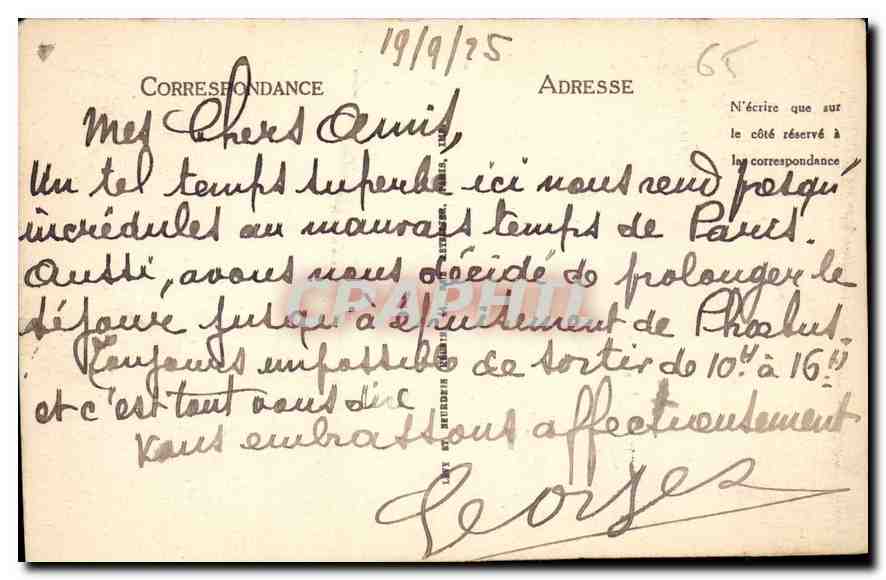 19/9/25
65
CORRESPONDANCE
ADRESSE
N'écrire que sur
le côté réservé à
la correspondance
Mes Chers Amis,
Un tel temps superbe ici nous rend presqu'
incrédules au mauvais temps de Paris.
Aussi, avons nous décidé de prolonger le
séjour jusqu'à épuisement de Phœbus.
Toujours impossible de sortir de 10H à 16H
et c'est tout vous dire
Vous embrassons affectueusement
Georges
LÉVY ET NEURDEIN RÉUNIS, PARIS, IMP.
CPAPHIL